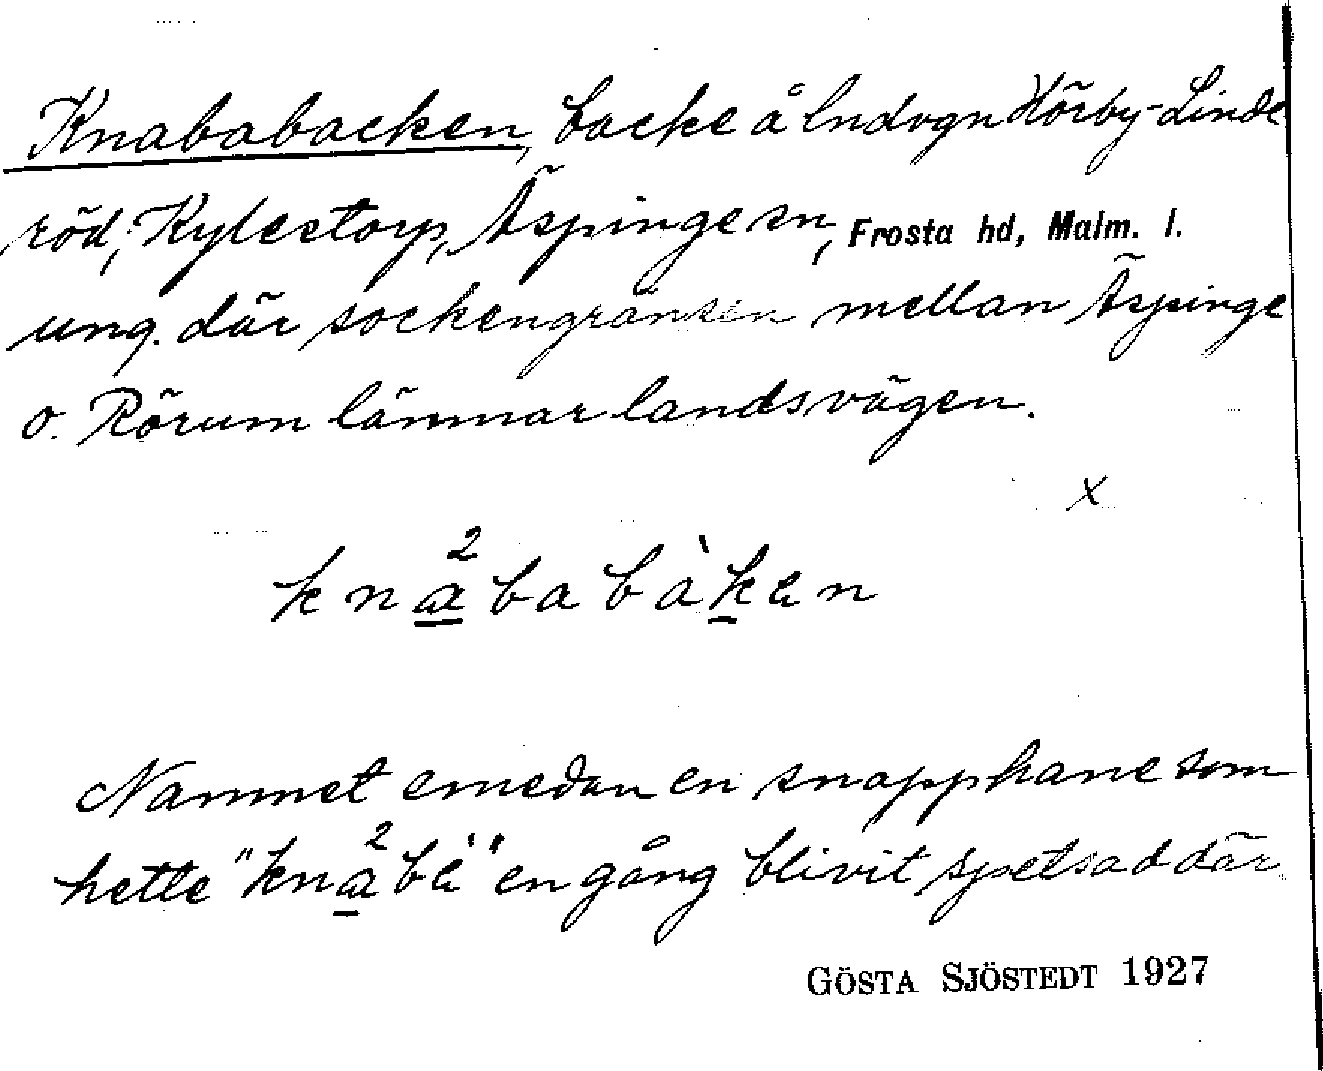 Knababacken, backe å lndvgn Hörby-Linde
röd, Kylestorp, Äspinge sn, Frosta hd, Malm. l.
ung. där sockengränsen mellan Äspinge
o. Rörum lämnar landsvägen.
x
kna²babàken
Namnet emedan en snapphane som
hette "kna²bè" en gång blivit spetsad där
GÖSTA SJÖSTEDT 1927